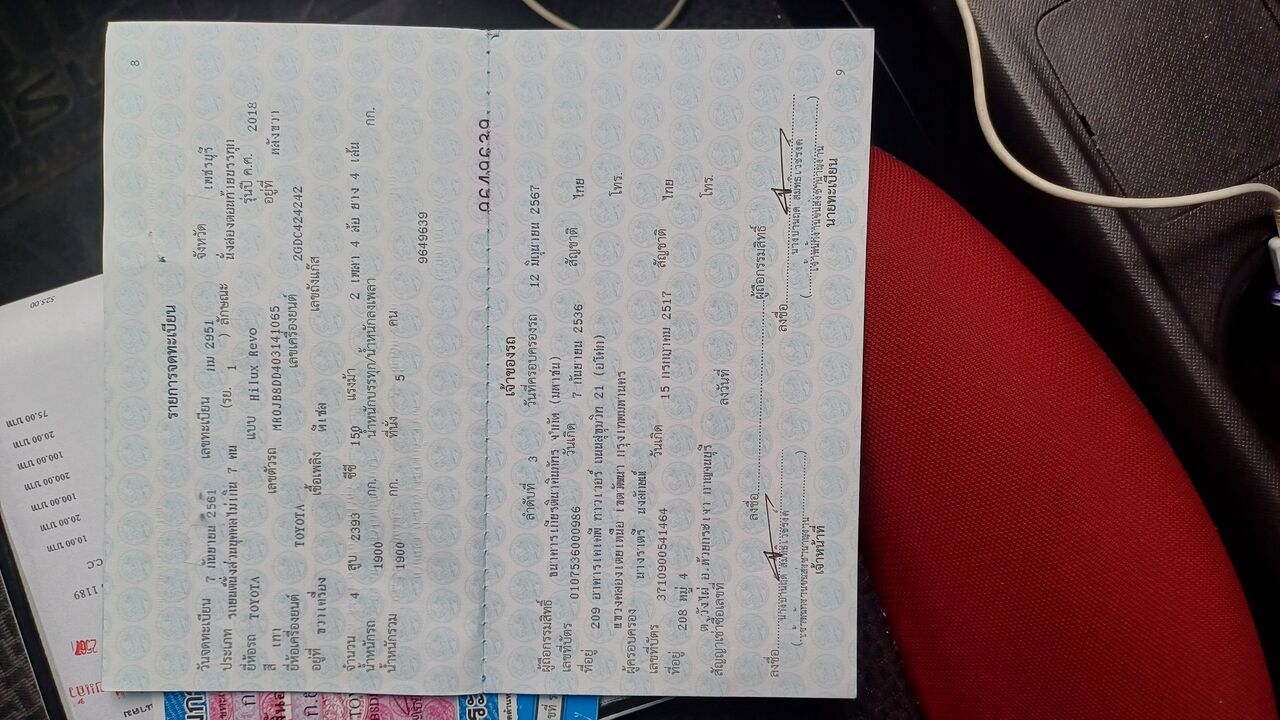 8
รายการจดทะเบียน
วันจดทะเบียน 7 กันยายน 2561 เลขทะเบียน กม 2951 จังหวัด เพชรบุรี
ประเภท รถยนต์นั่งส่วนบุคคลไม่เกิน 7 คน (รย. 1 ) ลักษณะ นั่งสองตอนท้ายบรรทุก
ยี่ห้อรถ TOYOTA แบบ Hilux Revo รุ่นปี ค.ศ. 2018
สี เทา เลขตัวรถ MR0JB8DD403141065 อยู่ที่ หลังขวา
ยี่ห้อเครื่องยนต์ TOYOTA เลขเครื่องยนต์ 2GDC424242
อยู่ที่ ขวาเครื่อง เชื้อเพลิง ดีเซล เลขถังแก๊ส
จำนวน 4 สูบ 2393 ซีซี 150 แรงม้า 2 เพลา 4 ล้อ ยาง 4 เส้น
น้ำหนักรถ 1900 กก. น้ำหนักบรรทุก/น้ำหนักลงเพลา กก.
น้ำหนักรวม 1900 กก. ที่นั่ง 5 คน
9649639
เจ้าของรถ
ลำดับที่ 3 วันที่ครอบครองรถ 12 มิถุนายน 2567
ผู้ถือกรรมสิทธิ์ ธนาคารเกียรตินาคินภัทร จำกัด (มหาชน)
เลขที่บัตร 0107536000986 วันเกิด 7 กันยายน 2536 สัญชาติ ไทย
ที่อยู่ 209 อาคารเคเคพี ทาวเวอร์ ถนนสุขุมวิท 21 (อโศก) โทร.
แขวงคลองเตยเหนือ เขตวัฒนา กรุงเทพมหานคร
ผู้ครอบครอง นางราตรี
เลขที่บัตร 3710900541464 วันเกิด 15 กรกฎาคม 2517 สัญชาติ ไทย
ที่อยู่ 208 หมู่ 4 โทร.
ต.วังไผ่ อ.ห้วยกระเจา กาญจนบุรี
สัญญาเช่าซื้อเลขที่ ลงวันที่
ลงชื่อ ผู้ถือกรรมสิทธิ์
ลงชื่อ ลงชื่อ
เจ้าหน้าที่ นายทะเบียน
9
525.00
75.00 บาท
20.00 บาท
100.00 บาท
200.00 บาท
100.00 บาท
20.00 บาท
10.00 บาท
1189